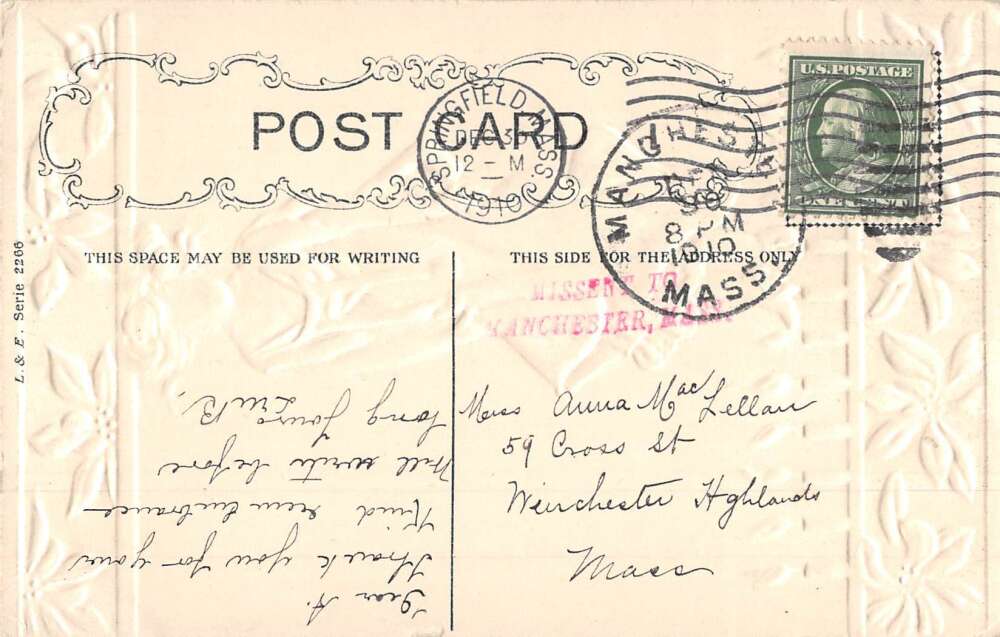 POST CARD
SPRINGFIELD, MASS.
DEC 3
12 - M
1910
MANCHESTER
8 PM
1910
MASS.
U.S. POSTAGE
ONE CENT
THIS SPACE MAY BE USED FOR WRITING
THIS SIDE FOR THE ADDRESS ONLY
MISSENT TO
MANCHESTER, MASS.
L. & E. Serie 2266
Miss Anna MacLellan
59 Cross St
Winchester Highlands
Mass
Dear A.
Thank you for your
Kind
Will write before
long Yours